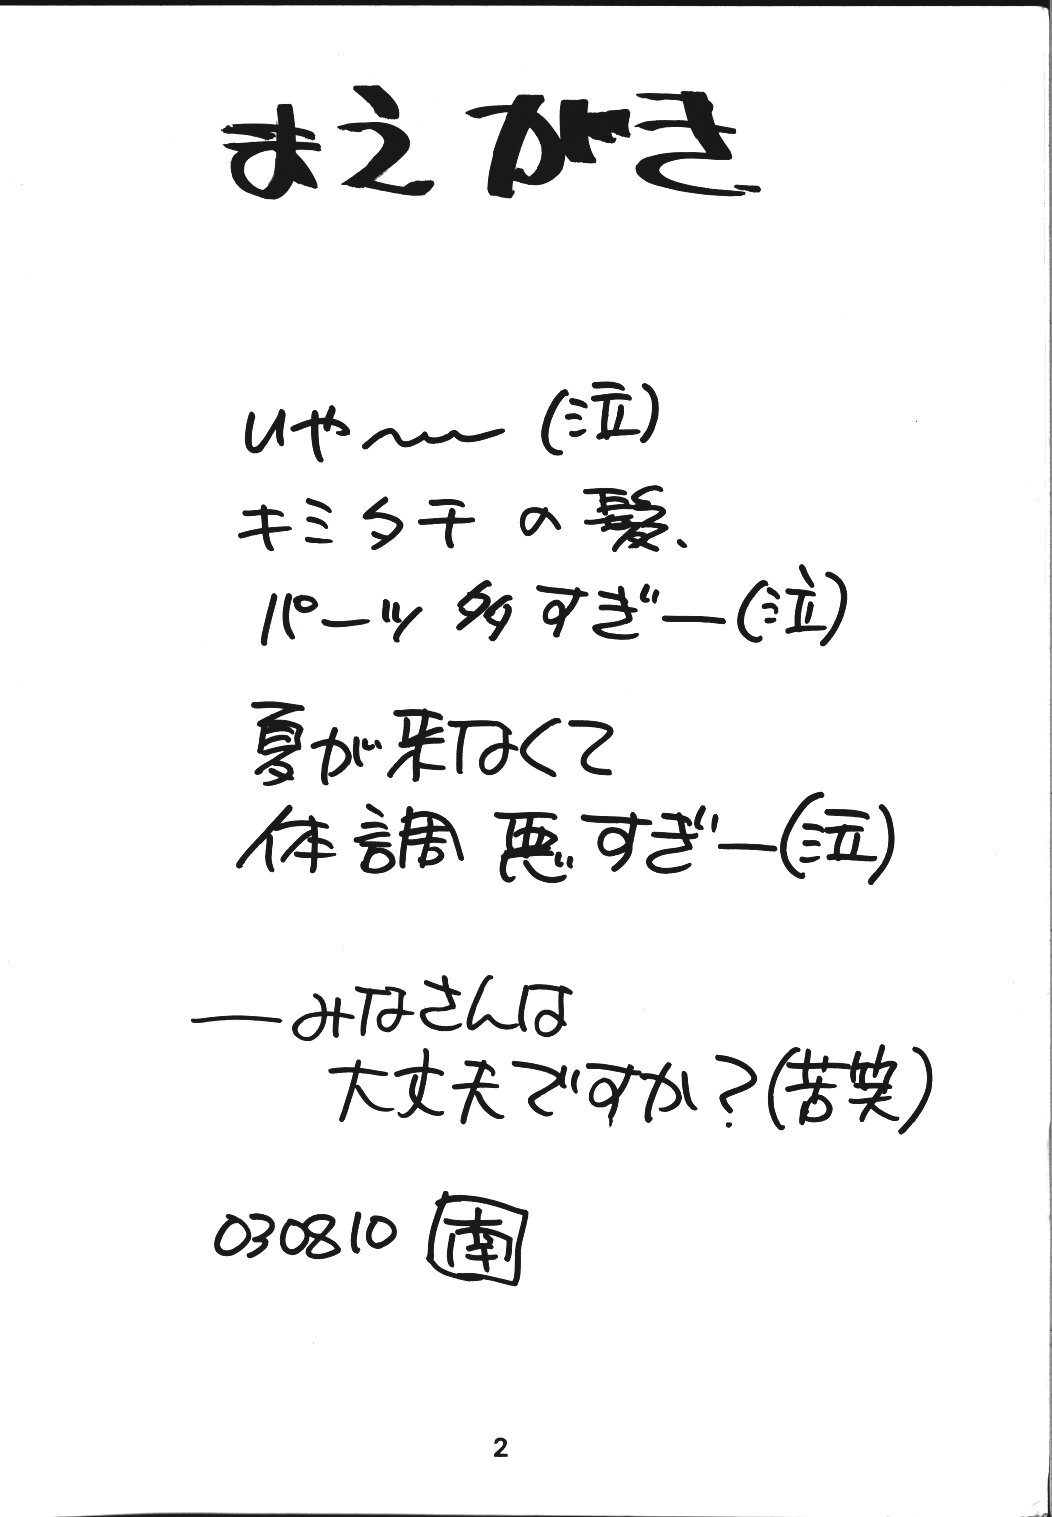 まえがき
いや〜〜(泣)
キミタチの髪、
パーツ多すぎー(泣)
夏が来なくて
体調悪すぎー(泣)
──みなさんは
大丈夫ですか?(苦笑)
030810 南
2